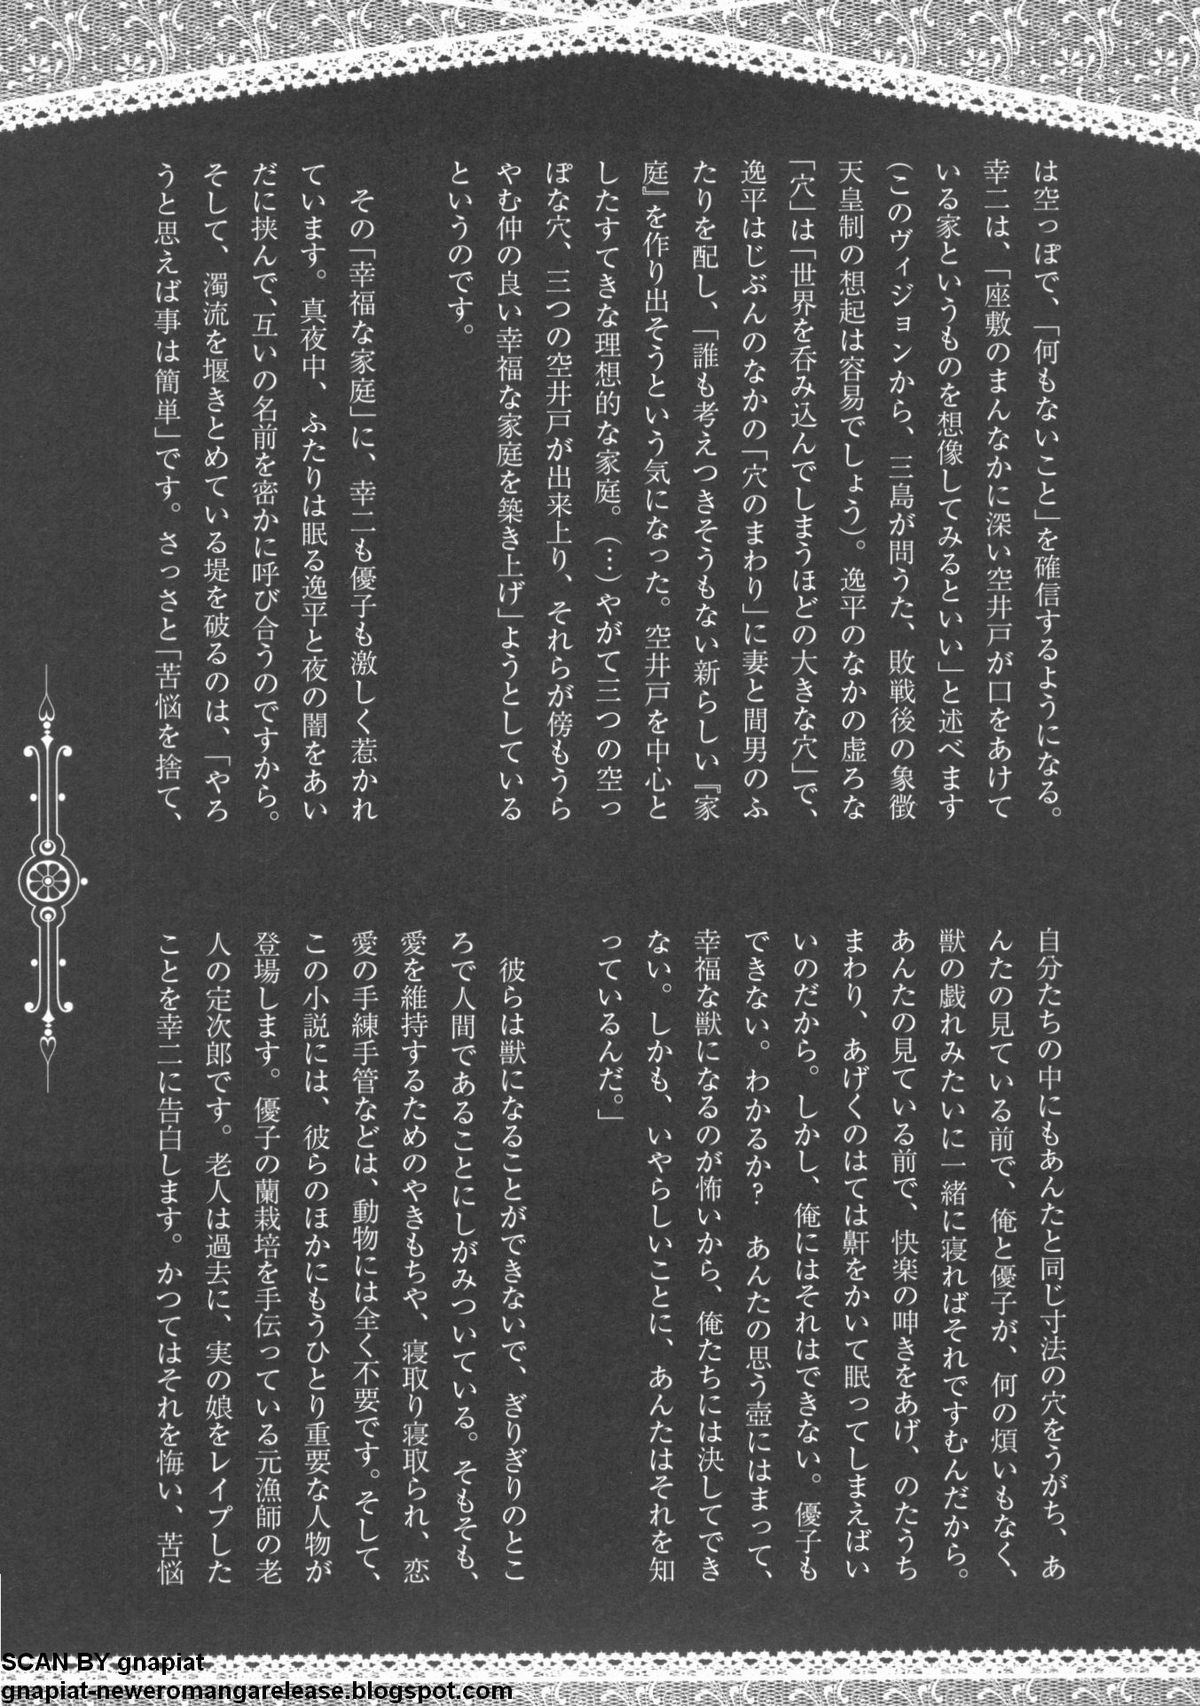 は空っぽで、「何もないこと」を確信するようになる。
幸二は、「座敷のまんなかに深い空井戸が口をあけて
いる家というものを想像してみるといい」と述べます
(このヴィジョンから、三島が問うた、敗戦後の象徴
天皇制の想起は容易でしょう)。逸平のなかの虚ろな
「穴」は「世界を呑み込んでしまうほどの大きな穴」で、
逸平はじぶんのなかの「穴のまわり」に妻と間男のふ
たりを配し、「誰も考えつきそうもない新らしい『家
庭』を作り出そうという気になった。空井戸を中心と
したすてきな理想的な家庭。(…)やがて三つの空っ
ぽな穴、三つの空井戸が出来上り、それらが傍もうら
やむ仲の良い幸福な家庭を築き上げ」ようとしている
というのです。
その「幸福な家庭」に、幸二も優子も激しく惹かれ
ています。真夜中、ふたりは眠る逸平と夜の闇をあい
だに挟んで、互いの名前を密かに呼び合うのですから。
そして、濁流を堰きとめている堤を破るのは、「やろ
うと思えば事は簡単」です。さっさと「苦悩を捨て、
自分たちの中にもあんたと同じ寸法の穴をうがち、あ
んたの見ている前で、俺と優子が、何の煩いもなく、
獣の戯れみたいに一緒に寝ればそれですむんだから。
あんたの見ている前で、快楽の呻きをあげ、のたうち
まわり、あげくのはては鼾をかいて眠ってしまえばい
いのだから。しかし、俺にはそれはできない。優子も
できない。わかるか? あんたの思う壺にはまって、
幸福な獣になるのが怖いから、俺たちには決してでき
ない。しかも、いやらしいことに、あんたはそれを知
っているんだ。」
彼らは獣になることができないで、ぎりぎりのとこ
ろで人間であることにしがみついている。そもそも、
愛を維持するためのやきもちや、寝取り寝取られ、恋
愛の手練手管などは、動物には全く不要です。そして、
この小説には、彼らのほかにもうひとり重要な人物が
登場します。優子の蘭栽培を手伝っている元漁師の老
人の定次郎です。老人は過去に、実の娘をレイプした
ことを幸二に告白します。かつてはそれを悔い、苦悩
SCAN BY gnapiat
gnapiat-neweromangarelease.blogspot.com